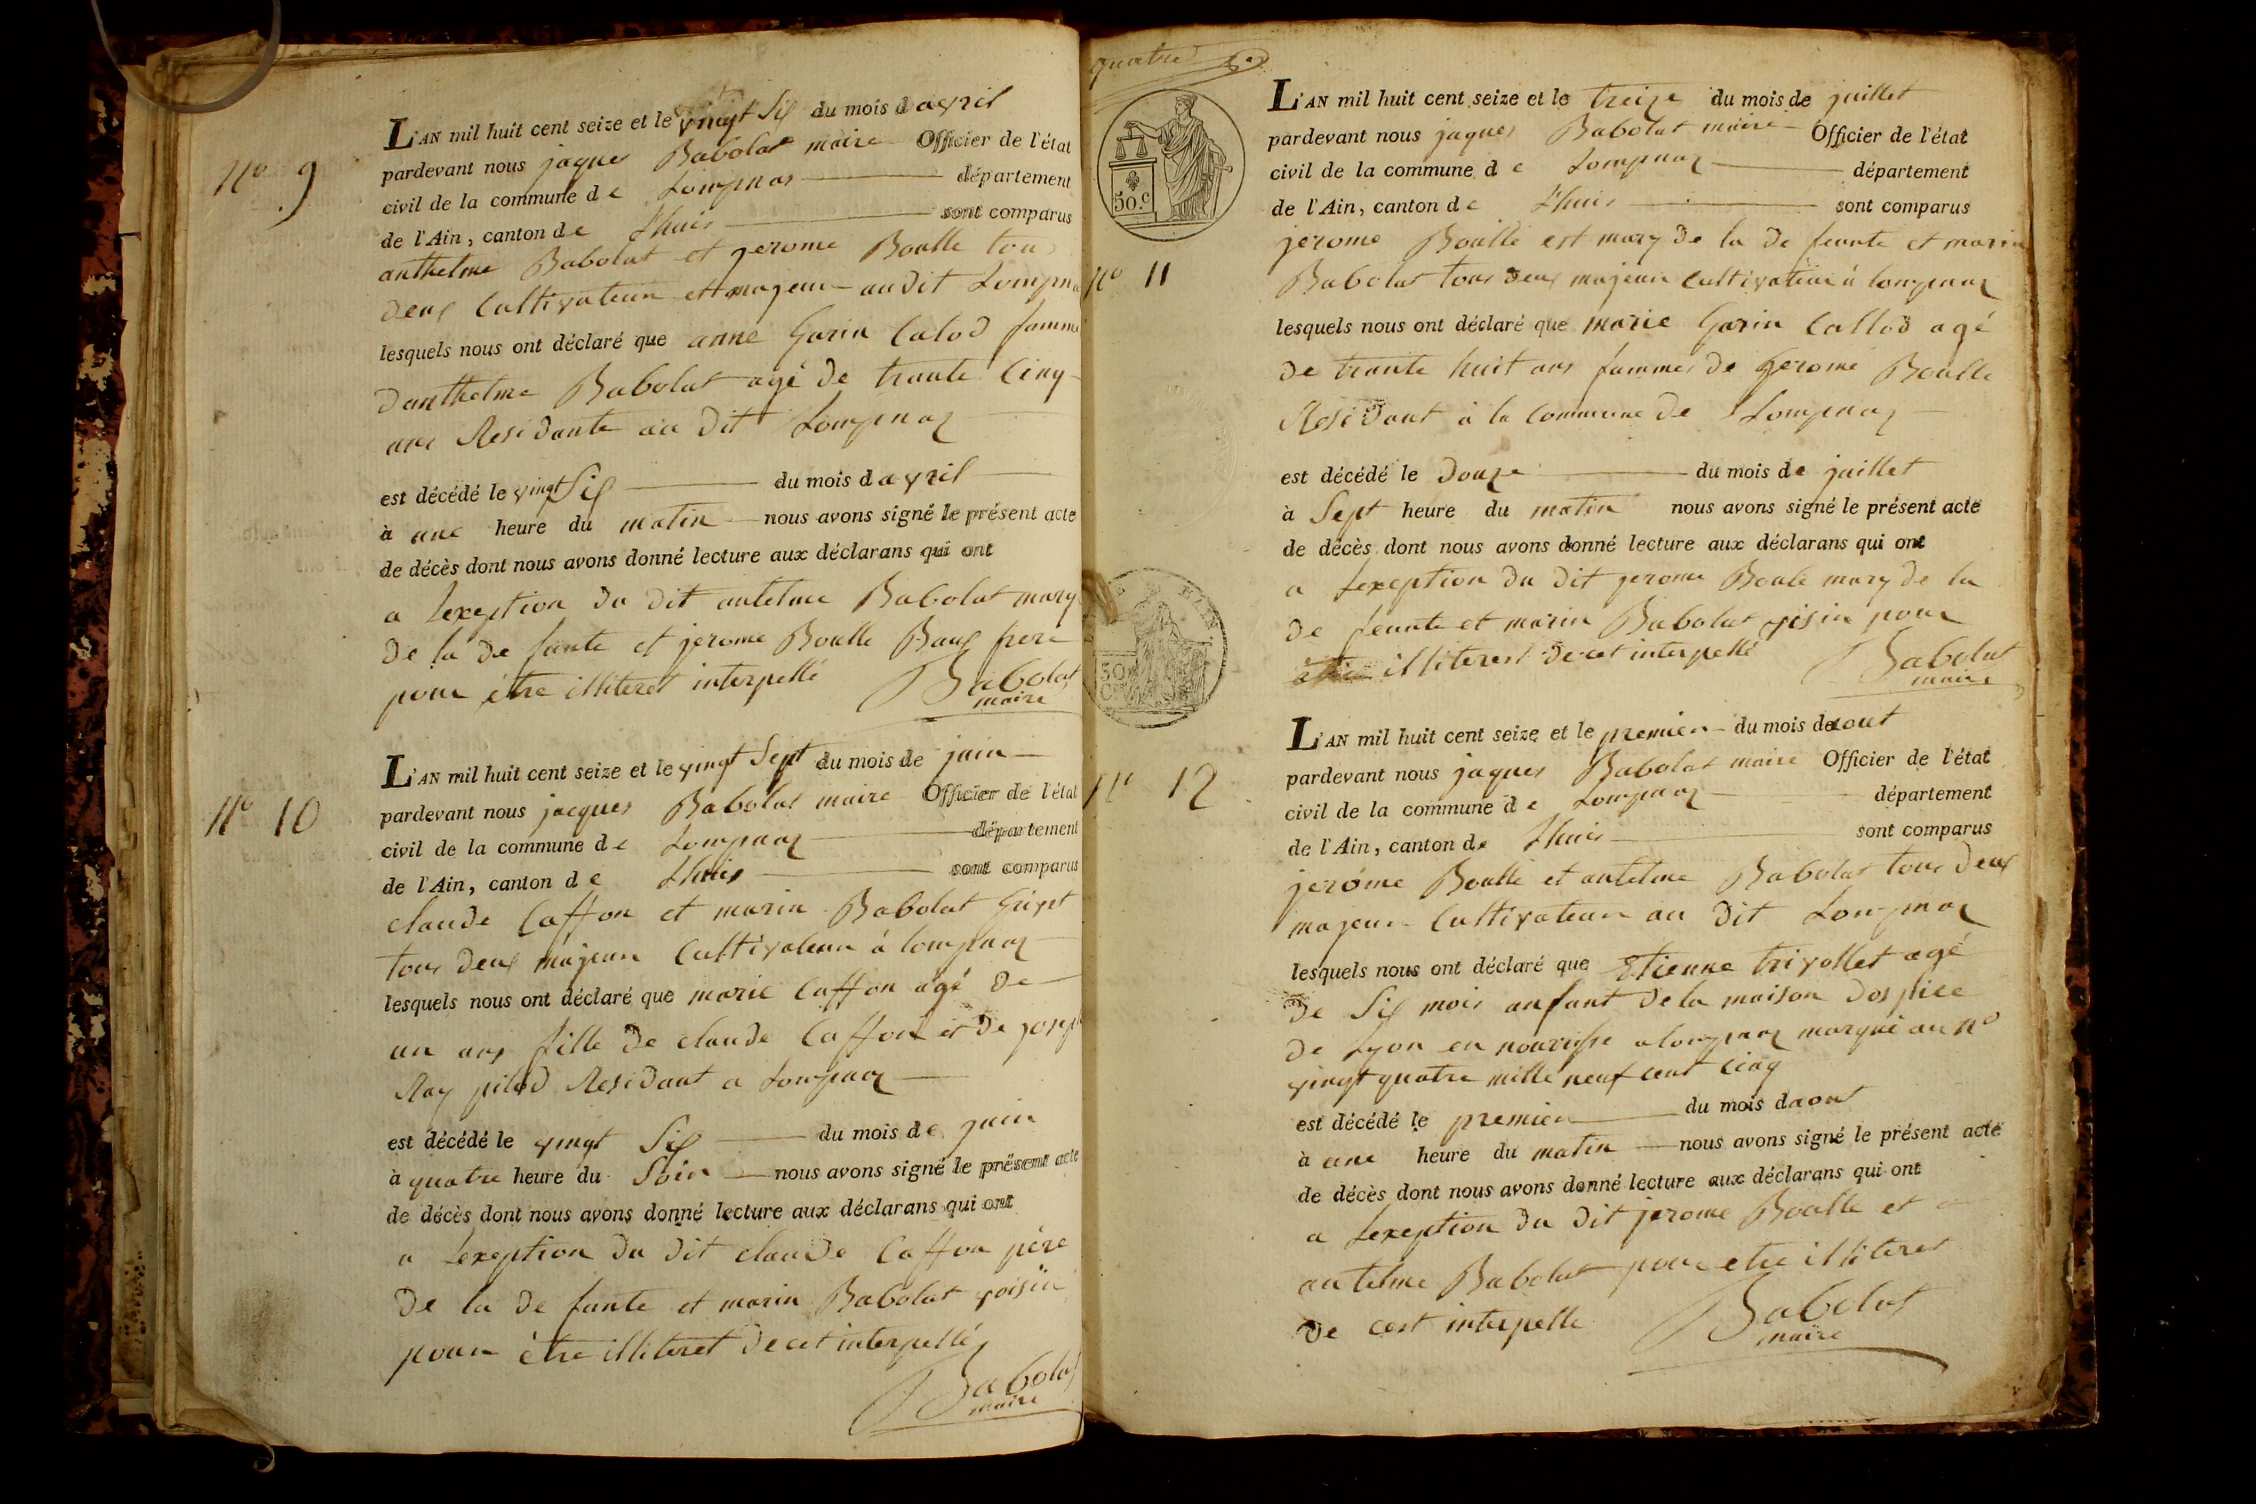 N° 9
L'AN mil huit cent seize et le vingt Six du mois d avril
pardevant nous jaques Babolat maire Officier de l'état
civil de la commune de Lompnas département
de l'Ain, canton de Lhuis sont comparus
anthelme Babolat et jerome Boulle tous
deux Cultivateur et majeur au dit Lompnas
lesquels nous ont déclaré que anne Garin Calod famme
danthelme Babolat agé de trante Cinq
ans Residante au dit Lompnaz
est décédé le vingt Six du mois d avril
à une heure du matin nous avons signé le présent acte
de décès dont nous avons donné lecture aux déclarans qui ont
a Lexeption du dit antelme Babolat mary
de la de funte et jerome Boulle Baux frere
pour être illiteret interpellé
Babolat
maire
N° 10
L'AN mil huit cent seize et le vingt Sept du mois de juin
pardevant nous jacques Babolat maire Officier de l'état
civil de la commune de Lompnaz département
de l'Ain, canton de Lhuis sont comparus
claude Caffon et marin Babolat
tous deux majeur Cultivateur à lompnaz
lesquels nous ont déclaré que marie Caffon agé de
un ans fille de claude Caffon et de
Ray pilod Residant a Lompnaz
est décédé le vingt Six du mois de juin
à quatre heure du Soir nous avons signé le présent acte
de décès dont nous avons donné lecture aux déclarans qui ont
a Lexeption du dit claude Caffon père
de la de funte et marin Babolat voisin
pour être illiteret de cet interpellé
Babolat
maire
quatre
50.c
N° 11
L'AN mil huit cent seize et le treize du mois de juillet
pardevant nous jaques Babolat maire Officier de l'état
civil de la commune de Lompnaz département
de l'Ain, canton de Lhuis sont comparus
jerome Boulle est mary de la de feunte et marin
Babolat tous deux majeur Cultivateur à lompnaz
lesquels nous ont déclaré que marie Garin Callod agé
de trante huit ans famme de Gerome Boulle
Residant à la Commune de Lompnaz
est décédé le douze du mois de juillet
à Sept heure du matin nous avons signé le présent acte
de décès dont nous avons donné lecture aux déclarans qui ont
a Lexeption du dit jerome Boule mary de la
de feunte et marin Babolat voisin pour
illiteret de cet interpellé
Babolat
maire
50
N° 12
L'AN mil huit cent seize et le premier du mois de aout
pardevant nous jaques Babolat maire Officier de l'état
civil de la commune de Lompnaz département
de l'Ain, canton de Lhuis sont comparus
jerome Boulle et antelme Babolat tous deux
majeur Cultivateur au dit Lompnaz
lesquels nous ont déclaré que Etienne trivollet agé
de Six mois anfant de la maison dospice
de Lyon en nourisse a lompnaz marqué au n°
vingt quatre mille neuf cent cinq
est décédé le premier du mois d aout
à une heure du matin nous avons signé le présent acte
de décès dont nous avons donné lecture aux déclarans qui ont
a Lexeption du dit jerome Boulle et
antelme Babolat pour etre illiteret
de cest interpelle
Babolat
maire